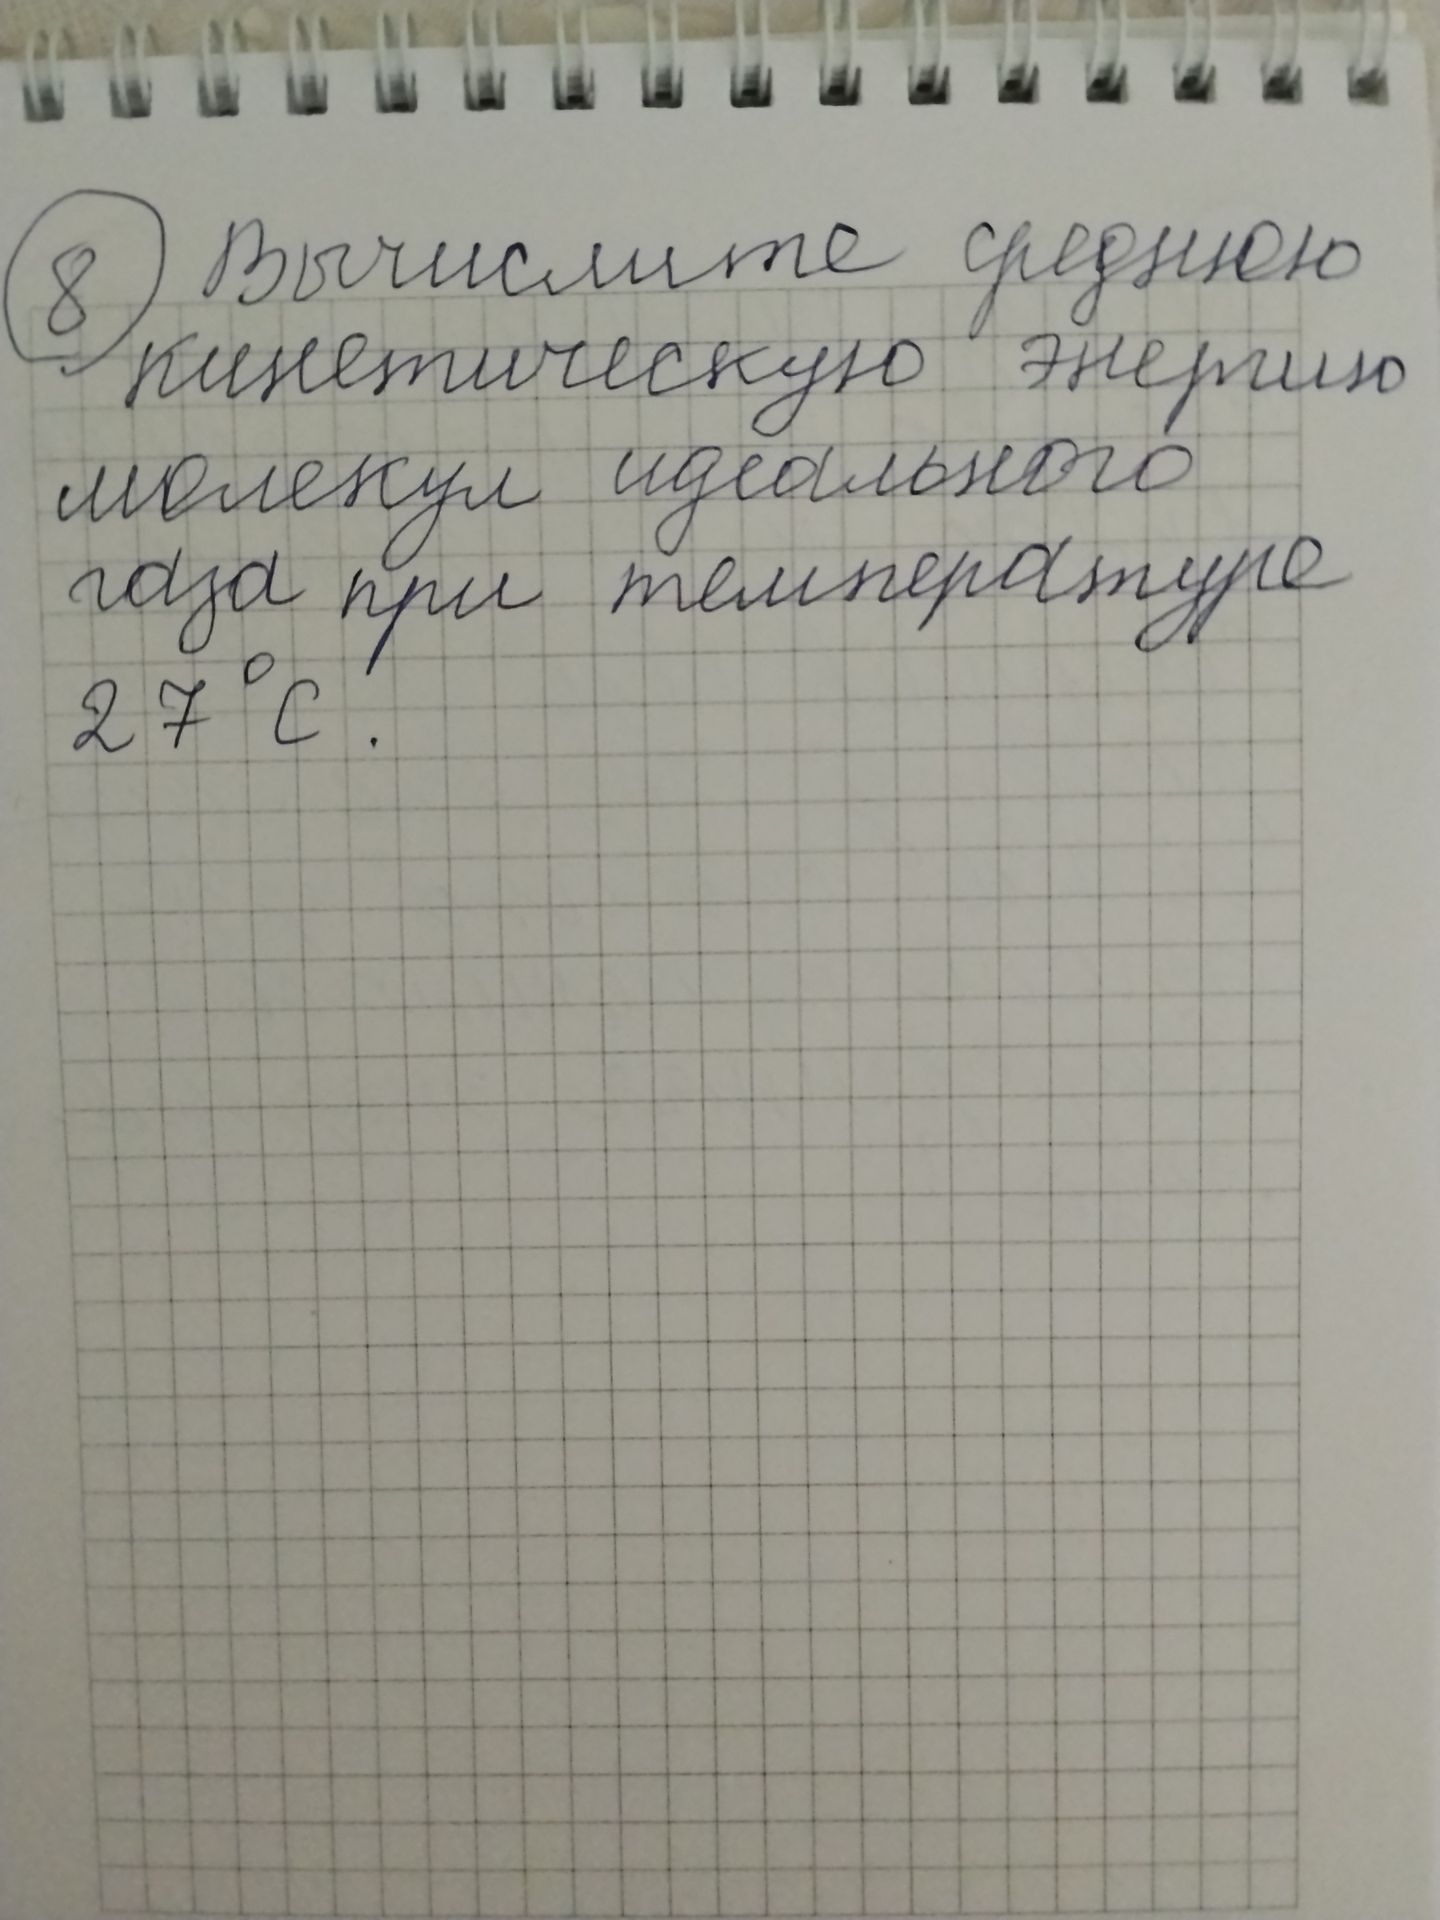 8 Вычислите среднюю
кинетическую энергию
молекул идеального
газа при температуре
27°C.